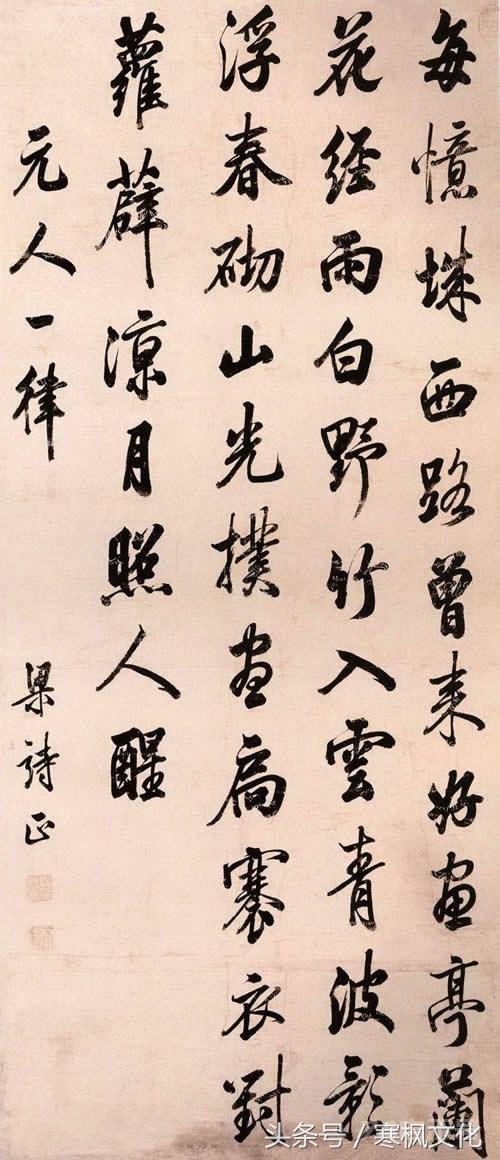 每憶西路曾来好畫亭蘭
花經雨白野竹入雲青波影
浮春砌山光撲畫扃褰衣對
蘿薜涼月照人醒
元人一律
梁詩正
头条号／寒枫文化